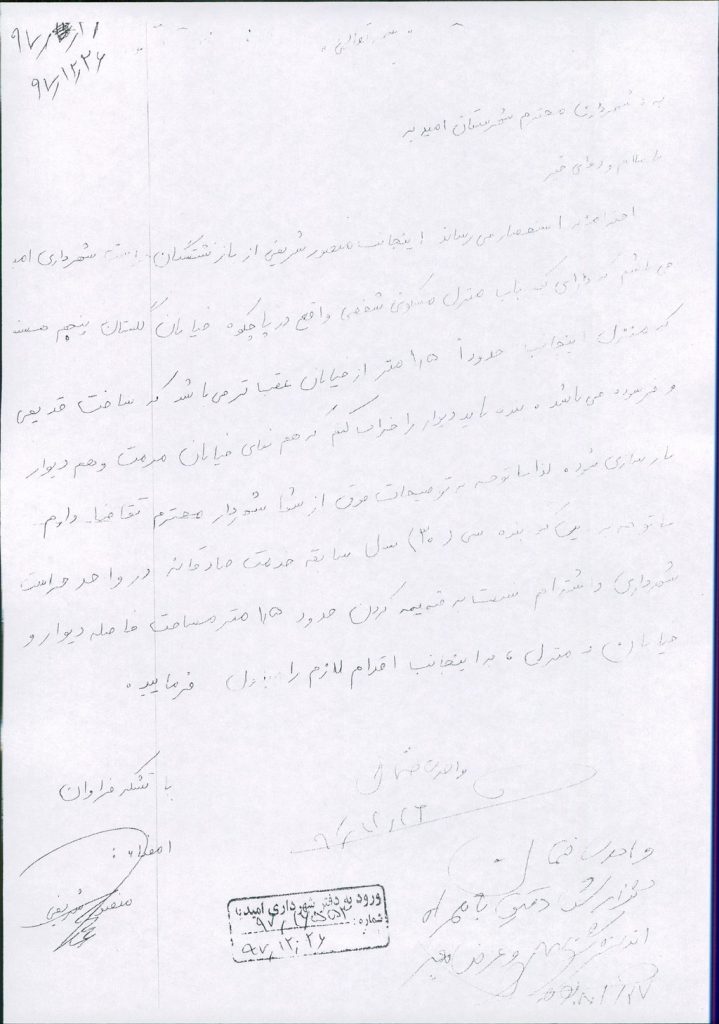 ۹۷/۱۲/۲۶
بسمه تعالی
به: شهرداری محترم شهرستان امیدیه
با سلام و دعای خیر
احتراماً به استحضار می رساند اینجانب منصور شریفی از بازنشستگان شهرداری
می باشم که دارای یک باب منزل مسکونی شخصی واقع در پاچکوه خیابان گلستان پنجم هستم
که منزل اینجانب حدوداً ۱/۵ متر از خیابان عقب تر می باشد که ساخت قدیمی
و فرسوده می باشد. بنده باید دیوار را خراب کنم که هم نمای خیابان مرمت و هم دیوار
بازسازی شود. لذا با توجه به توضیحات فوق از شما شهردار محترم تقاضا دارم
با توجه به اینکه بنده سی (۳۰) سال سابقه خدمت صادقانه در واحد حراست
شهرداری داشته ام نسبت به ضمیمه کردن حدود ۱/۵ متر مساحت فاصله دیوار و
خیابان و منزل، به اینجانب اقدام لازم را مبذول فرمایید.
با تشکر فراوان
امضاء:
منصور شریفی
ورود به دفتر شهرداری امیدیه
شماره:
۹۷/۱۲/۲۶